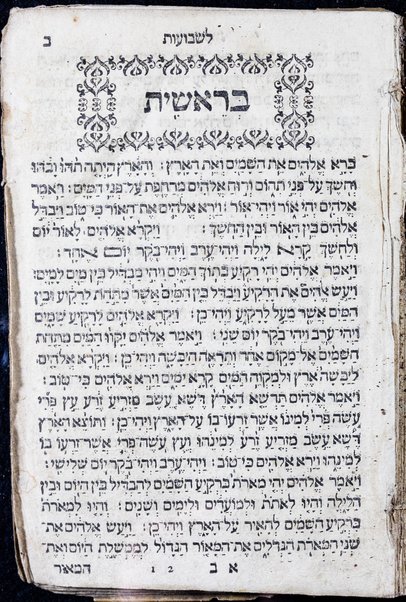 ב לשבועות
בראשית
ברא אלהים את השמים ואת הארץ׃ והארץ היתה תהו ובהו
וחשך על־פני תהום ורוח אלהים מרחפת על־פני המים׃ ויאמר
אלהים יהי אור ויהי־אור׃ וירא אלהים את־האור כי־טוב ויבדל
אלהים בין האור ובין החשך׃ ויקרא אלהים׀ לאור יום
ולחשך קרא לילה ויהי־ערב ויהי־בקר יום אחד׃
ויאמר אלהים יהי רקיע בתוך המים ויהי מבדיל בין מים למים׃
ויעש אלהים את־הרקיע ויבדל בין המים אשר מתחת לרקיע ובין
המים אשר מעל לרקיע ויהי־כן׃ ויקרא אלהים לרקיע שמים
ויהי־ערב ויהי־בקר יום שני׃ ויאמר אלהים יקוו המים מתחת
השמים אל־מקום אחד ותראה היבשה ויהי־כן׃ ויקרא אלהים׀
ליבשה ארץ ולמקוה המים קרא ימים וירא אלהים כי־טוב׃
ויאמר אלהים תדשא הארץ דשא עשב מזריע זרע עץ פרי
עשה פרי למינו אשר זרעו־בו על־הארץ ויהי־כן׃ ותוצא הארץ
דשא עשב מזריע זרע למינהו ועץ עשה־פרי אשר זרעו־בו
למינהו וירא אלהים כי־טוב׃ ויהי־ערב ויהי־בקר יום שלישי׃
ויאמר אלהים יהי מארת ברקיע השמים להבדיל בין היום ובין
הלילה והיו לאתת ולמועדים ולימים ושנים׃ והיו למאורת
ברקיע השמים להאיר על־הארץ ויהי־כן׃ ויעש אלהים את־
שני המארת הגדלים את־המאור הגדול לממשלת היום ואת־
א ב 1 2 המאור